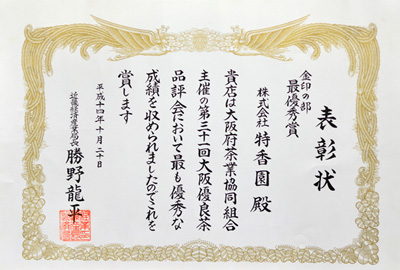 表彰状
金印の部
最優秀賞
株式会社 特香園 殿
貴店は大阪府茶業協同組合
主催の第三十一回大阪優良茶
品評会において最も優秀な
成績を収められましたのでこれを
賞します
平成十四年十月二十日
近畿経済産業局長
勝野龍平